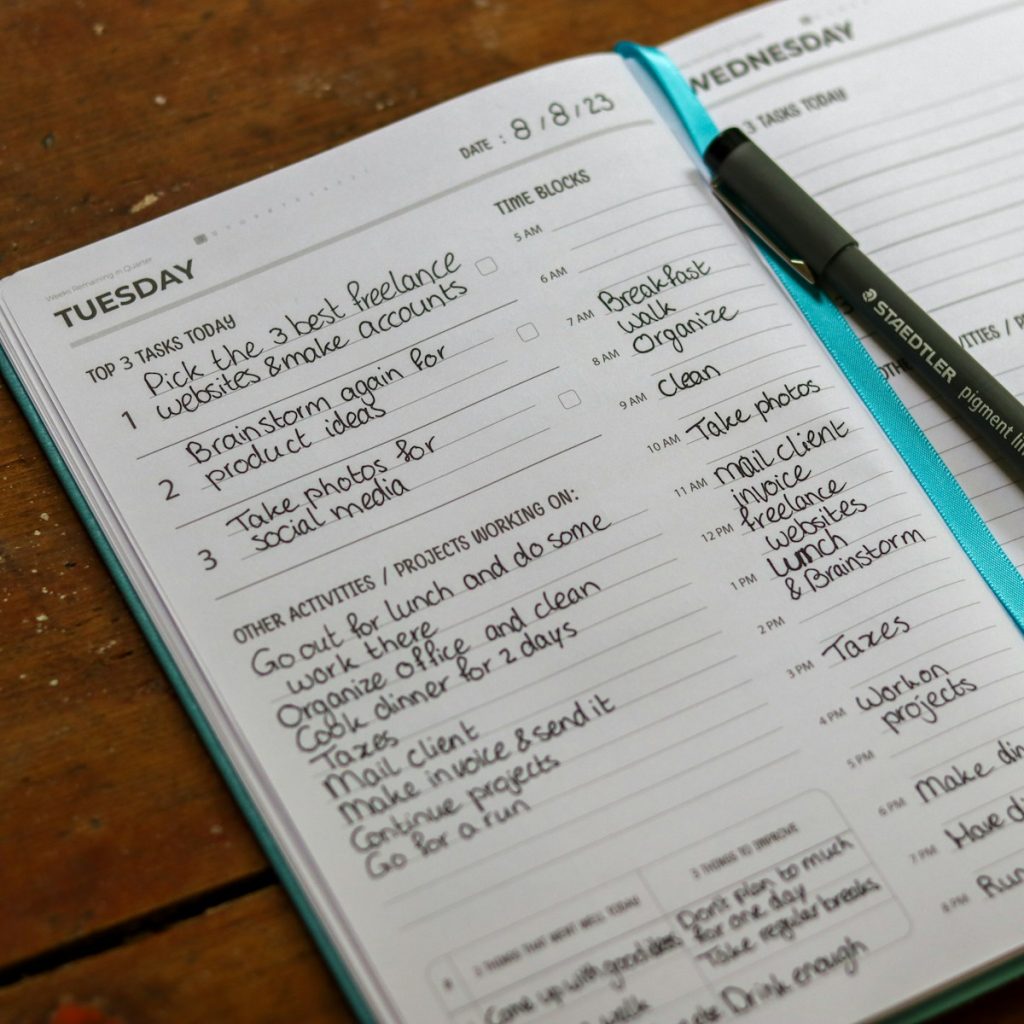 DATE : 8/8/23
Weeks Remaining in Quarter
TUESDAY
TOP 3 TASKS TODAY
1 Pick the 3 best freelance
websites & make accounts
2 Brainstorm again for
product ideas
3 Take photos for
social media
OTHER ACTIVITIES / PROJECTS WORKING ON:
Go out for lunch and do some
work there
Organize office and clean
Cook dinner for 2 days
Taxes
Mail client
Make invoice & send it
Continue projects
Go for a run
TIME BLOCKS
5 AM
6 AM
7 AM Breakfast
walk
8 AM Organize
9 AM Clean
10 AM Take photos
11 AM mail client
invoice
12 PM freelance
websites
1 PM Lunch
& Brainstorm
2 PM
3 PM Taxes
4 PM Work on
projects
5 PM
6 PM Make
7 PM Have
8 PM
3 THINGS THAT WENT WELL TODAY
Came up with good ideas
walk
3 THINGS TO IMPROVE
Don't plan to much
for one day
Take regular breaks
Drink enough
WEDNESDAY
3 TASKS TODAY
STAEDTLER
pigment